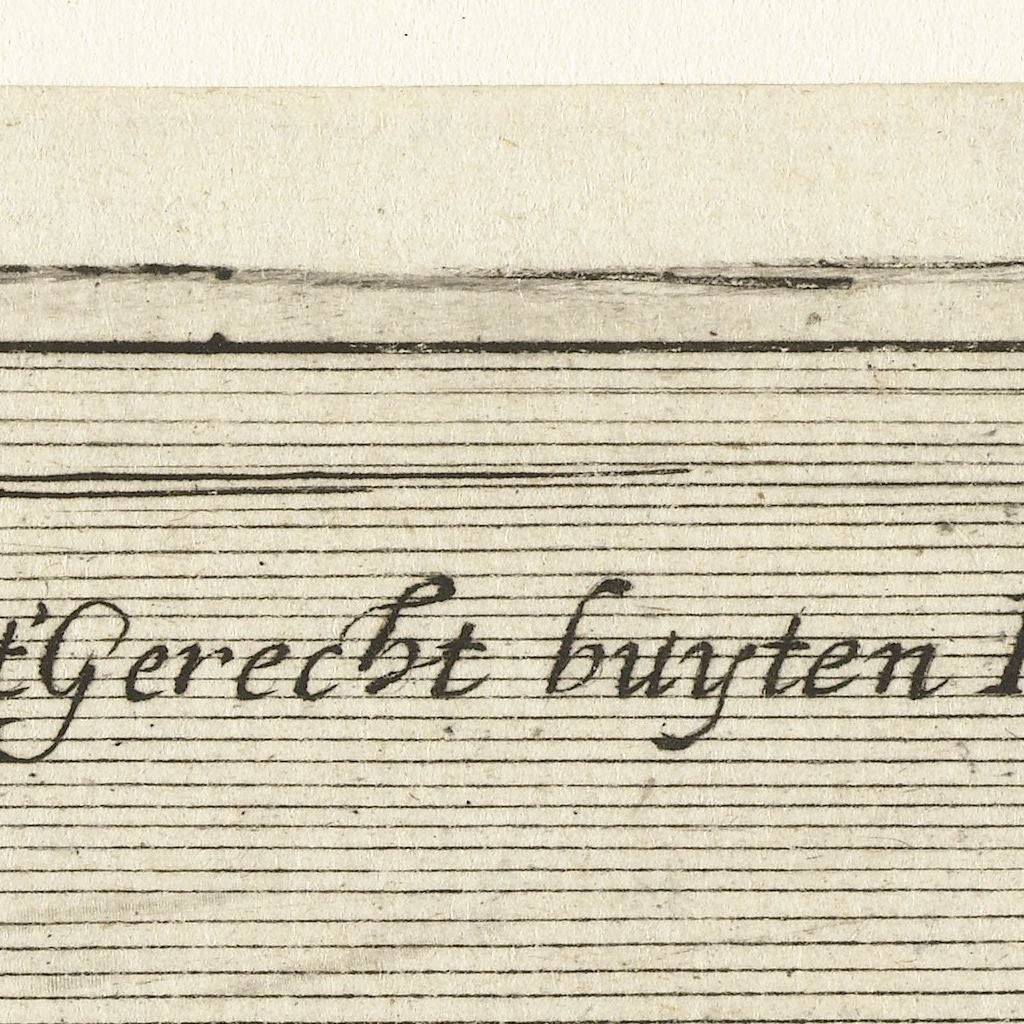 t'Gerecht buyten